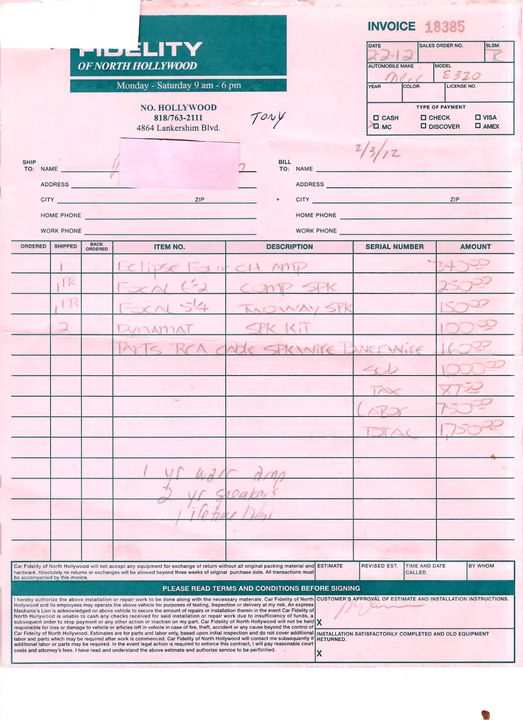 FIDELITY
OF NORTH HOLLYWOOD
Monday - Saturday 9 am - 6 pm
NO. HOLLYWOOD
818/763-2111
4864 Lankershim Blvd.
TONY
INVOICE 18385
DATE SALES ORDER NO. SLSM.
2-2-12 R
AUTOMOBILE MAKE MODEL
Merc E320
YEAR COLOR LICENSE NO.
TYPE OF PAYMENT
CASH CHECK VISA
MC DISCOVER AMEX
2/3/12
SHIP TO: NAME
ADDRESS
CITY ZIP
HOME PHONE
WORK PHONE
BILL TO: NAME
ADDRESS
CITY ZIP
HOME PHONE
WORK PHONE
ORDERED SHIPPED BACK ORDERED ITEM NO. DESCRIPTION SERIAL NUMBER AMOUNT
1 Eclipse Four CH AMP 340.00
1 PR Focal 6 1/2 COMP SPK 250.00
1 PR Focal 5 1/4 TWOWAY SPK 150.00
2 DYNAMAT SPK KIT 100.00
PARTS RCA CABLE SPKWIRE POWERWIRE 160.00
SUB 1000.00
TAX 87.50
LABOR
TOTAL 1,750.00
1 yr warr amp
2 yr speakers
Lifetime
Car Fidelity of North Hollywood will not accept any equipment for exchange of return without all original packing material and hardware. Absolutely no returns or exchanges will be allowed beyond three weeks of original purchase date. All transactions must be accompanied by this invoice.
ESTIMATE REVISED EST. TIME AND DATE CALLED BY WHOM
PLEASE READ TERMS AND CONDITIONS BEFORE SIGNING
I hereby authorize the above installation or repair work to be done along with the necessary materials. Car Fidelity of North Hollywood and its employees may operate the above vehicle for purposes of testing, inspection or delivery at my risk. An express Mechanic's Lien is acknowledged on above vehicle to secure the amount of repairs or installation therein in the event Car Fidelity of North Hollywood is unable to cash any checks received for said installation or repair work due to insufficiency of funds, a subsequent order to stop payment or any other action or inaction on my part. Car Fidelity of North Hollywood will not be held responsible for loss or damage to vehicle or articles left in vehicle in case of fire, theft, accident or any cause beyond the control of Car Fidelity of North Hollywood. Estimates are for parts and labor only, based upon initial inspection and do not cover additional labor and parts which may be required after work is commenced. Car Fidelity of North Hollywood will contact me subsequently if additional labor or parts may be required. In the event legal action is required to enforce this contract, I will pay reasonable court costs and attorney's fees. I have read and understand the above estimate and authorize service to be performed.
CUSTOMER'S APPROVAL OF ESTIMATE AND INSTALLATION INSTRUCTIONS.
X
INSTALLATION SATISFACTORILY COMPLETED AND OLD EQUIPMENT RETURNED.
X